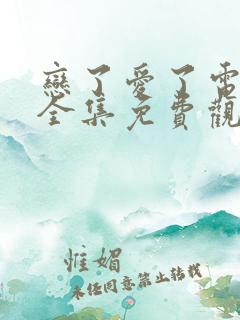 戀了愛了電
全集免費觀
惟媚
未经同意禁止转载